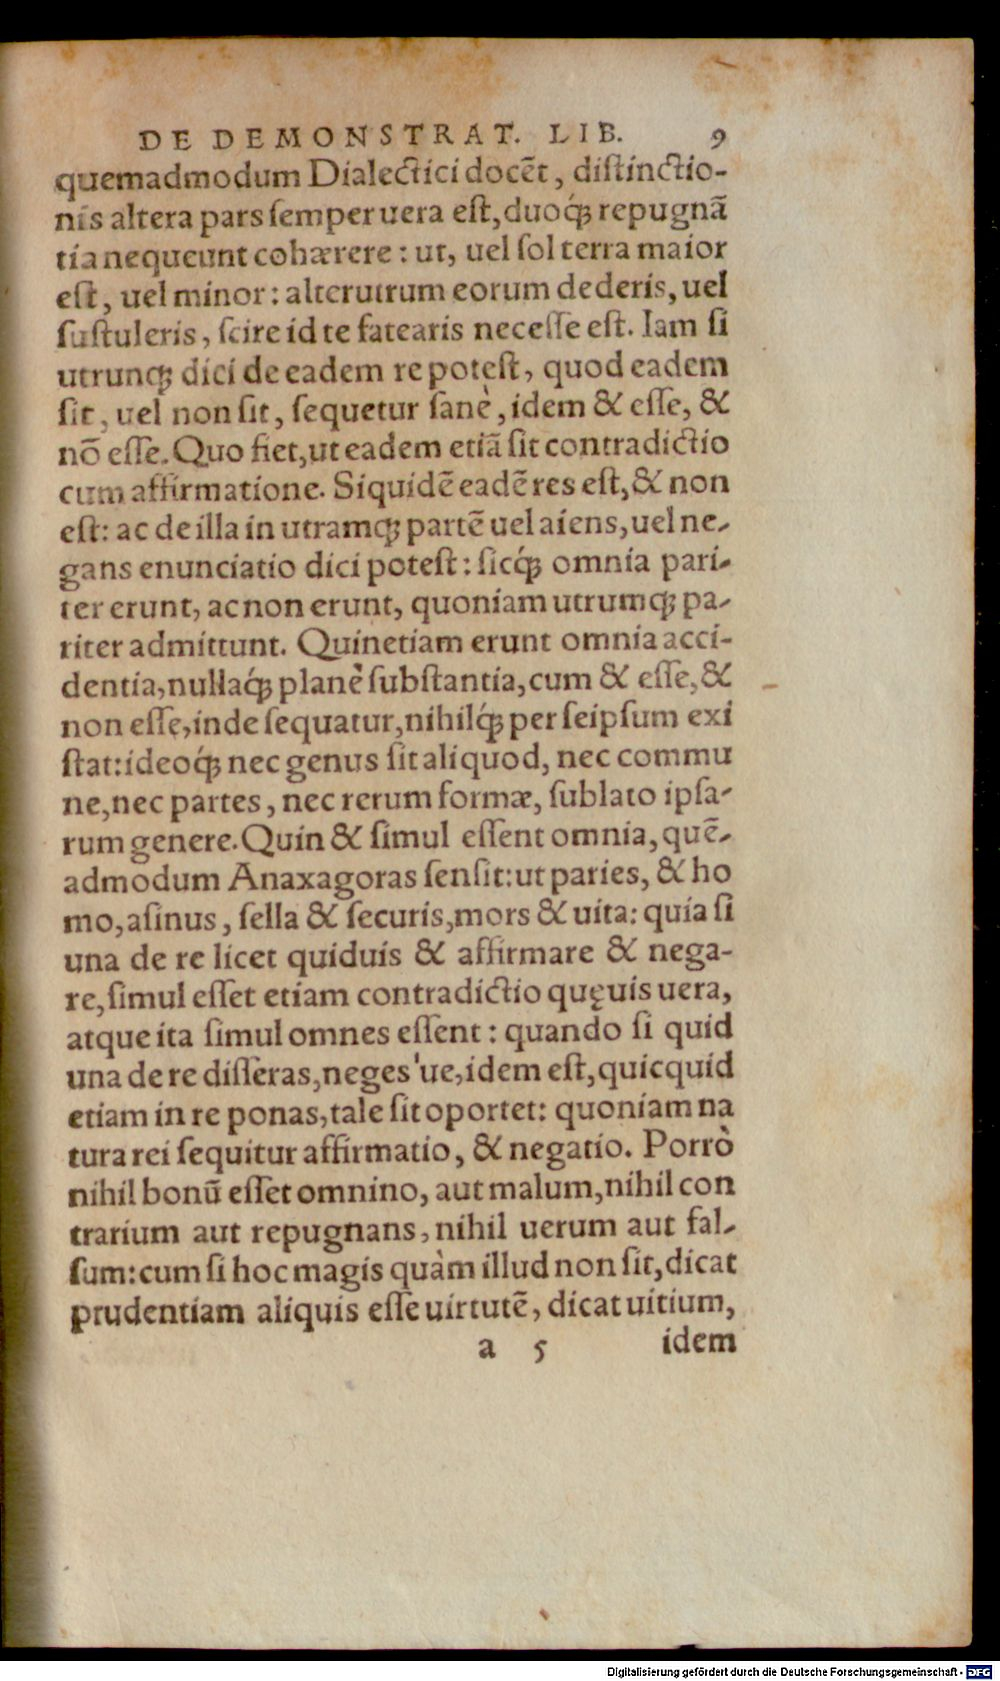 DE DEMONSTRAT. LIB. 9
quemadmodum Dialectici docēt, distinctio-
nis altera pars semper uera est, duoq́; repugnā
tia nequeunt cohærere: ut, uel sol terra maior
est, uel minor: alterutrum eorum dederis, uel
sustuleris, scire id te fatearis necesse est. Iam si
utrunq; dici de eadem re potest, quod eadem
sit, uel non sit, sequetur sanè, idem & esse, &
nō esse. Quo fiet, ut eadem etiā sit contradictio
cum affirmatione. Siquidē eadē res est, & non
est: ac de illa in utramq; partē uel aiens, uel ne-
gans enunciatio dici potest: sicq́; omnia pari-
ter erunt, ac non erunt, quoniam utrumq; pa-
riter admittunt. Quinetiam erunt omnia acci-
dentia, nullaq́; planè substantia, cum & esse, &
non esse, inde sequatur, nihilq́; per seipsum exi
stat: ideoq́; nec genus sit aliquod, nec commu
ne, nec partes, nec rerum formæ, sublato ipsa-
rum genere. Quin & simul essent omnia, quē-
admodum Anaxagoras sensit: ut paries, & ho
mo, asinus, sella & securis, mors & uita: quia si
una de re licet quiduis & affirmare & nega-
re, simul esset etiam contradictio quęuis uera,
atque ita simul omnes essent: quando si quid
una de re disseras, neges'ue, idem est, quicquid
etiam in re ponas, tale sit oportet: quoniam na
tura rei sequitur affirmatio, & negatio. Porrò
nihil bonū esset omnino, aut malum, nihil con
trarium aut repugnans, nihil uerum aut fal-
sum: cum si hoc magis quàm illud non sit, dicat
prudentiam aliquis esse uirtutē, dicat uitium,
a 5 idem
Digitalisierung gefördert durch die Deutsche Forschungsgemeinschaft - DFG